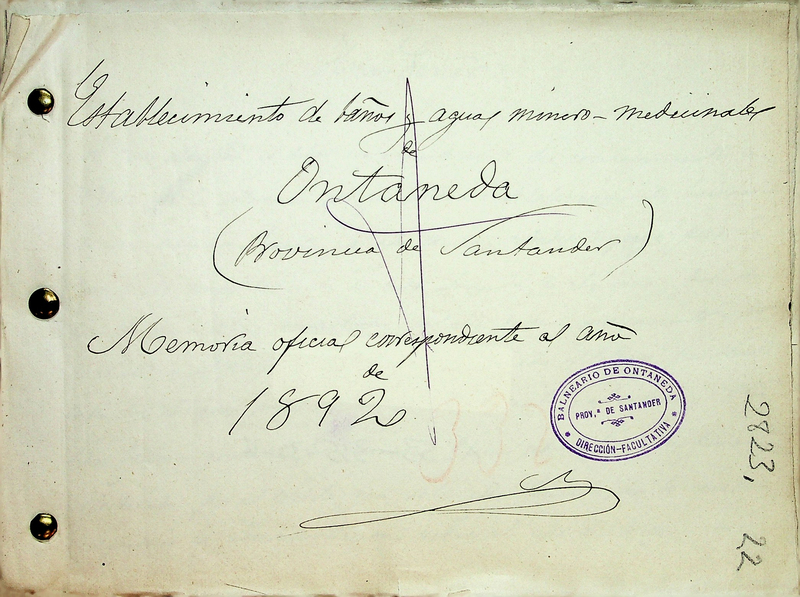 Establecimiento de baños y aguas minero-medicinales
de
Ontaneda
(Provincia de Santander)
Memoria oficial correspondiente al año
de
1892
BALNEARIO DE ONTANEDA
PROV.ª DE SANTANDER
DIRECCIÓN-FACULTATIVA
2823,
22